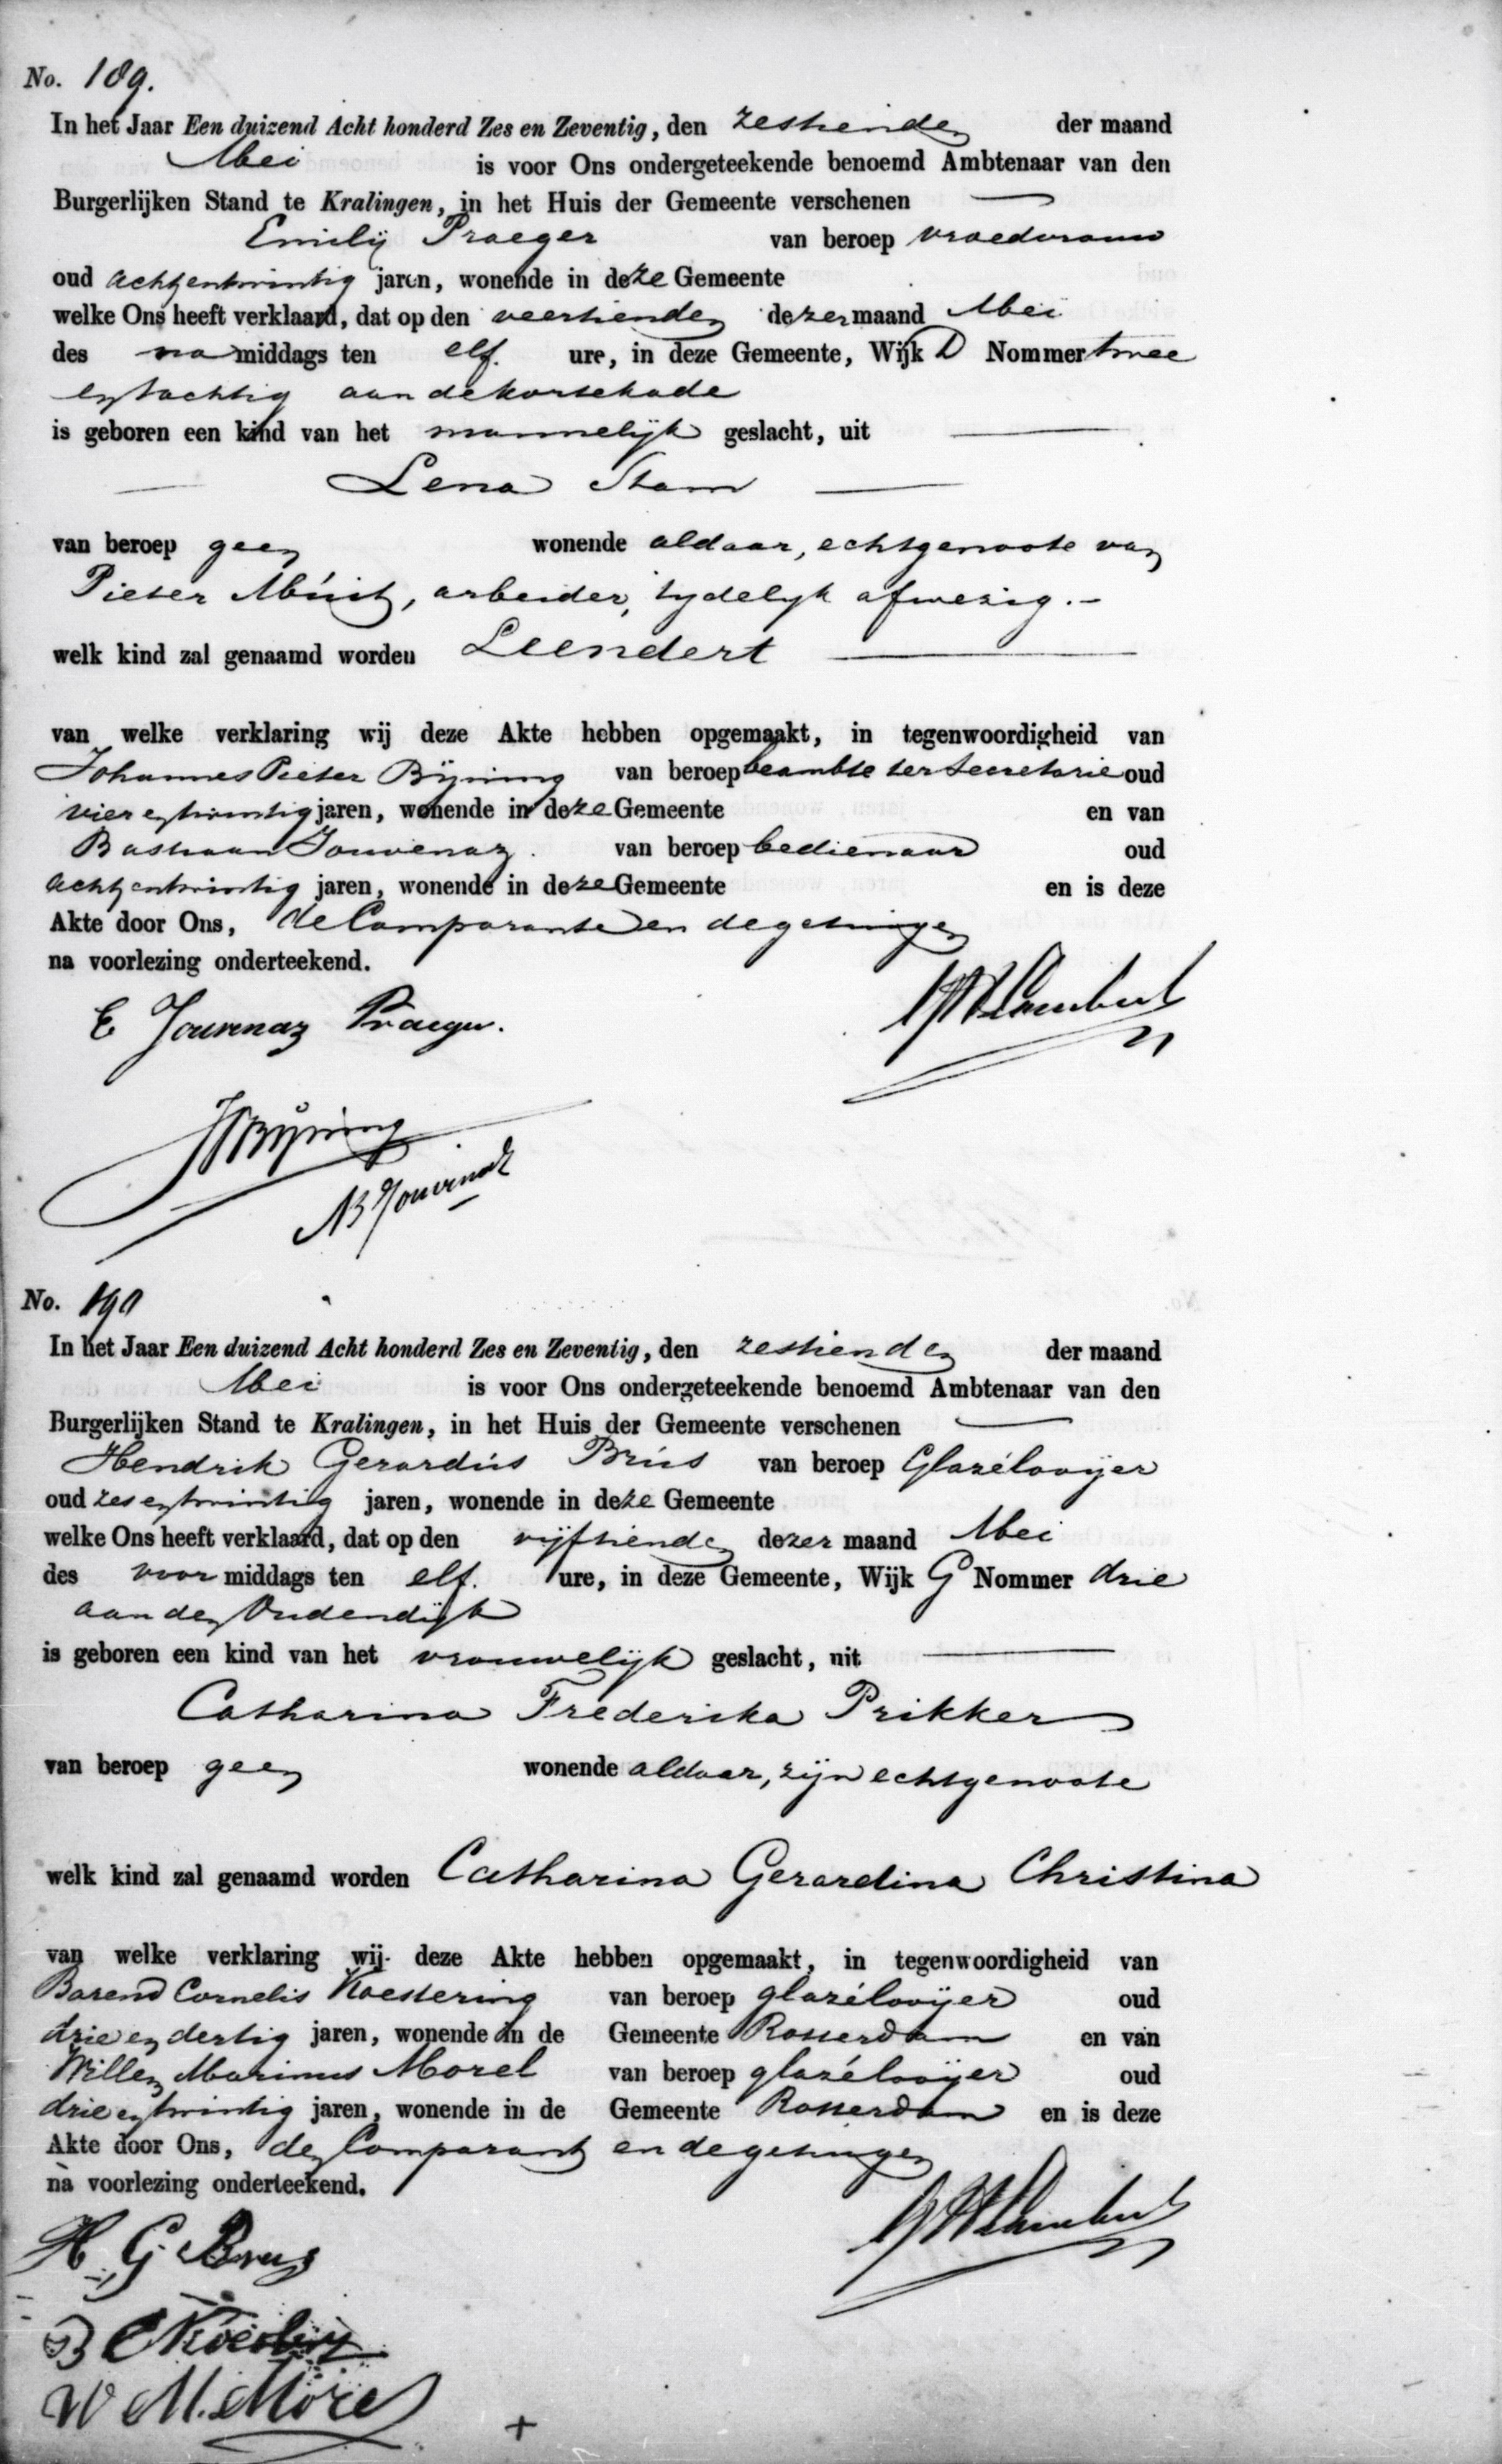 No. 189.
In het Jaar Een duizend Acht honderd Zes en Zeventig, den zestienden der maand
Mei is voor Ons ondergeteekende benoemd Ambtenaar van den
Burgerlijken Stand te Kralingen, in het Huis der Gemeente verschenen
Emilij Praeger van beroep vroedvrouw
oud achtentwintig jaren, wonende in deze Gemeente
welke Ons heeft verklaard, dat op den veertienden dezer maand Mei
des namiddags ten elf. ure, in deze Gemeente, Wijk D Nommer twee
en tachtig aan de kortekade
is geboren een kind van het mannelijk geslacht, uit
Lena Stam
van beroep geen wonende aldaar, echtgenoote van
Pieter Muit, arbeider, tydelyk afwezig.
welk kind zal genaamd worden Leendert
van welke verklaring wij deze Akte hebben opgemaakt, in tegenwoordigheid van
Johannes Pieter Bijning van beroep beambte ter Secretarie oud
vier en twintig jaren, wonende in deze Gemeente en van
Bastiaan Jouvenaz. van beroep bedienaar oud
achtentwintig jaren, wonende in deze Gemeente en is deze
Akte door Ons, de Comparante en de getuigen
na voorlezing onderteekend.
E Jouvenaz Praeger.
Lambert
JPBijning
B Jouvenaz
No. 190
In het Jaar Een duizend Acht honderd Zes en Zeventig, den zestienden der maand
Mei is voor Ons ondergeteekende benoemd Ambtenaar van den
Burgerlijken Stand te Kralingen, in het Huis der Gemeente verschenen
Hendrik Gerardus Brus van beroep Glazélooijer
oud zes en twintig jaren, wonende in deze Gemeente
welke Ons heeft verklaard, dat op den vijftienden dezer maand Mei
des voormiddags ten elf. ure, in deze Gemeente, Wijk G Nommer drie
aan den Oudendijk
is geboren een kind van het vrouwelijk geslacht, uit
Catharina Frederika Prikker
van beroep geen wonende aldaar, zijn echtgenoote
welk kind zal genaamd worden Catharina Gerardina Christina
van welke verklaring wij deze Akte hebben opgemaakt, in tegenwoordigheid van
Barend Cornelis Koestering van beroep glazélooijer oud
drie en dertig jaren, wonende in de Gemeente Rotterdam en van
Willem Marinus Morel van beroep glazélooijer oud
drie en twintig jaren, wonende in de Gemeente Rotterdam en is deze
Akte door Ons, den Comparant en de getuigen
na voorlezing onderteekend.
H. G. Brus
Lambert
B C Koestering
W M. Morel